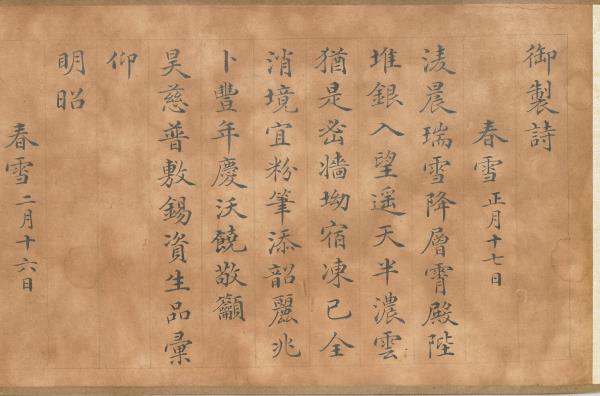 御製詩
春雪 正月十七日
淩晨瑞雪降層霄殿陛
堆銀入望遥天半濃雲
猶是密牆坳宿凍已全
消境宜粉筆添韶麗兆
卜豐年慶沃饒敬籲
昊慈普敷錫資生品彙
仰
明昭
春雪 二月十六日